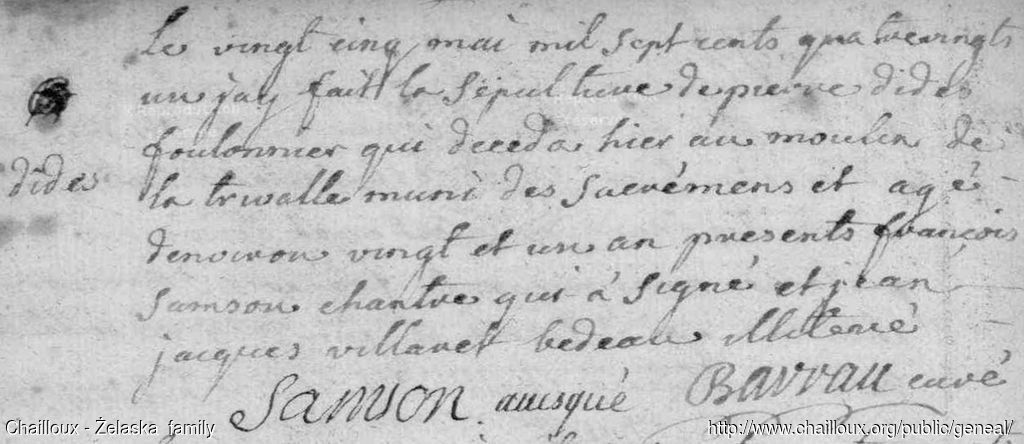 Le vingt cinq mai mil sept cents quatrevingts
un jay fait la sepulture de pierre dides
foulonnier qui deceda hier au moulin de
dides
la trivalle muni des sacrémens et agé
denviron vingt et un an presents françois
samson chantre qui à signé et jean
jacques villaret bedeau illiteré
Samson ausqué Barrau curé
Chailloux - Żelaska family
http://www.chailloux.org/public/geneal/